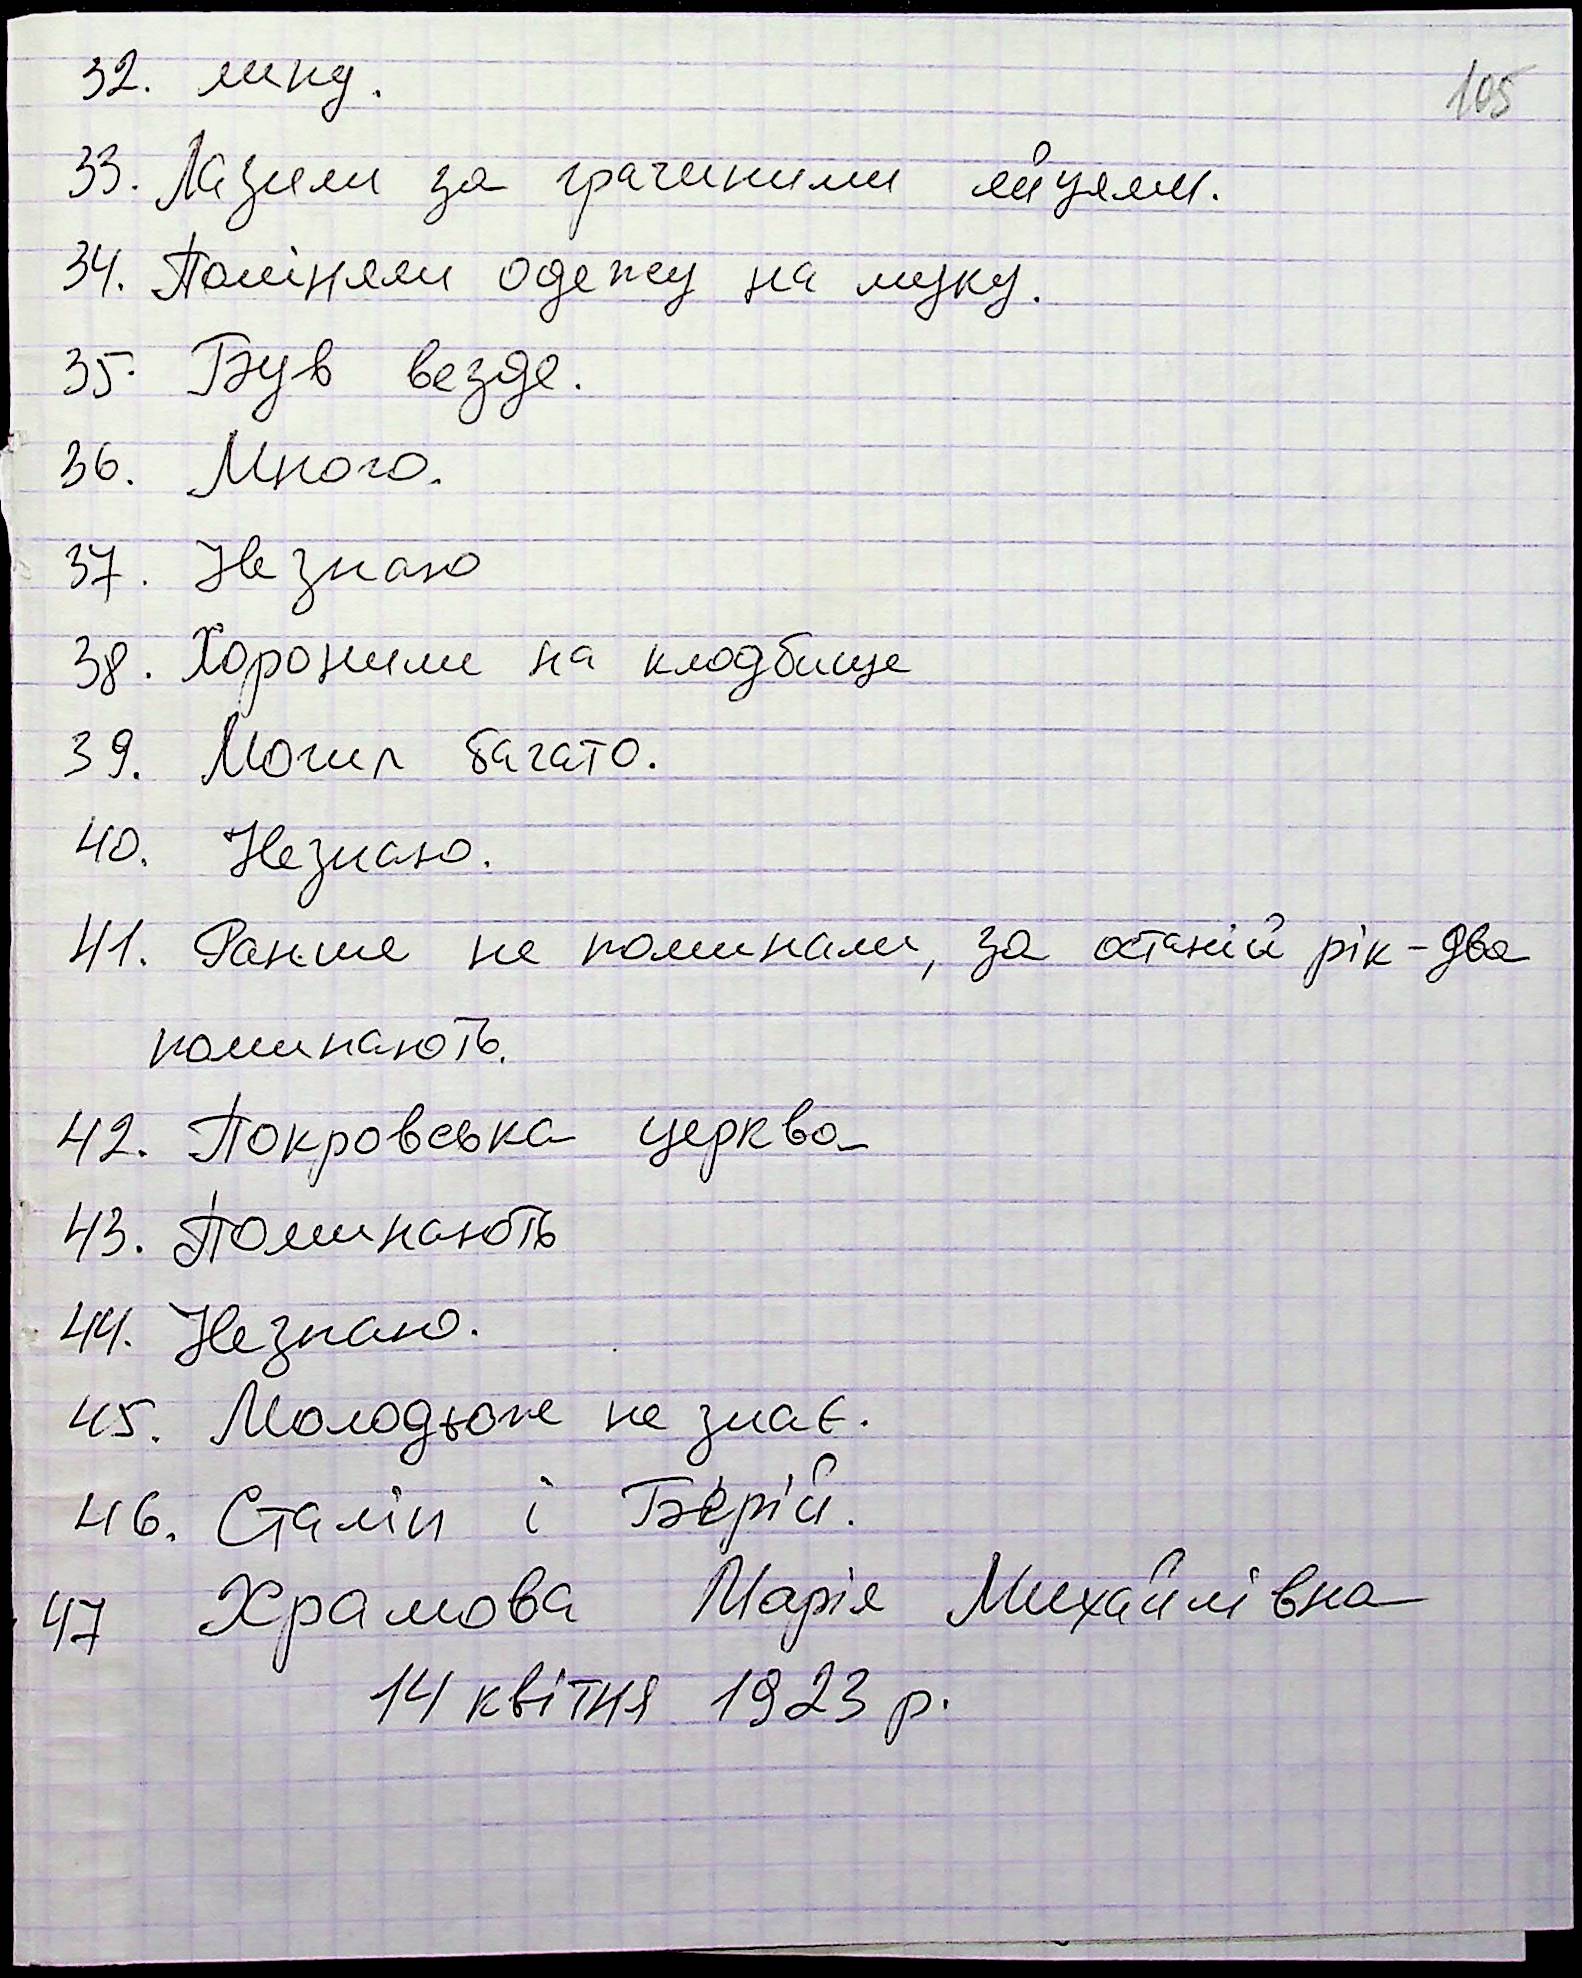 105
32. липу.
33. Лазили за грачиними яйцями.
34. Поміняли одежу на муку.
35. Був везде.
36. Много.
37. Не знаю
38. Хоронили на клодбище
39. Могил багато.
40. Незнаю.
41. Раньше не поминали, за останій рік-два
поминають.
42. Покровська церква
43. Поминають
44. Незнаю.
45. Молодьож не знає.
46. Сталін і Берій.
47 Храмова Марія Михайлівна
14 квітня 1923 р.